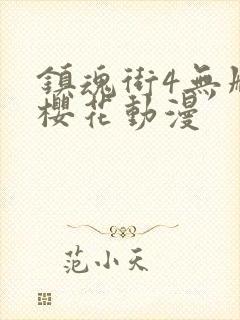 鎮魂街4無
櫻花動漫
范小天